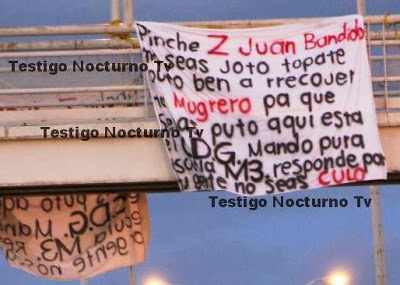 Pinche Z Juan Bandido
no seas joto topate
puto ben a rrecojer
Mugrero pa que
puto aqui esta
C.D.G. Mando pura
M3. responde por
gente no seas CULO
Testigo Nocturno Tv
Testigo Nocturno Tv
Testigo Nocturno Tv
puto aq
C.D.G. Man
M3. Re
a gente no s